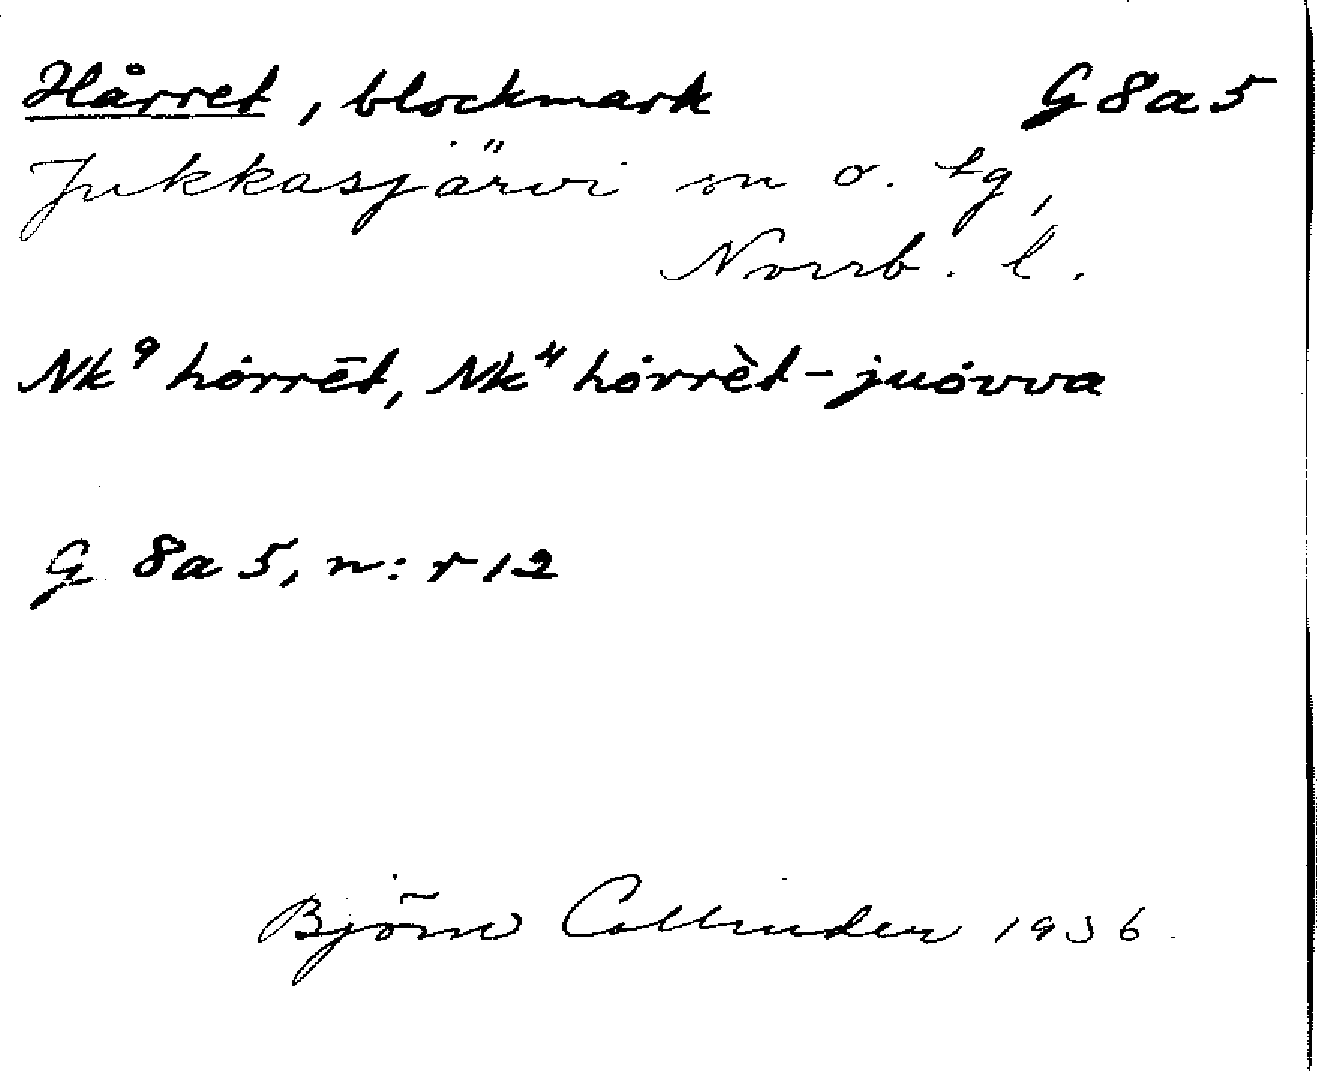 Hårret, blockmark G 8 a 5
Jukkasjärvi sn o. tg,
Norrb. l.
Nk⁹ hȯrrēt, Nk⁴ hȯrrèt-juȯvva
G 8a 5, n: r 12
Björn Collinder 1936